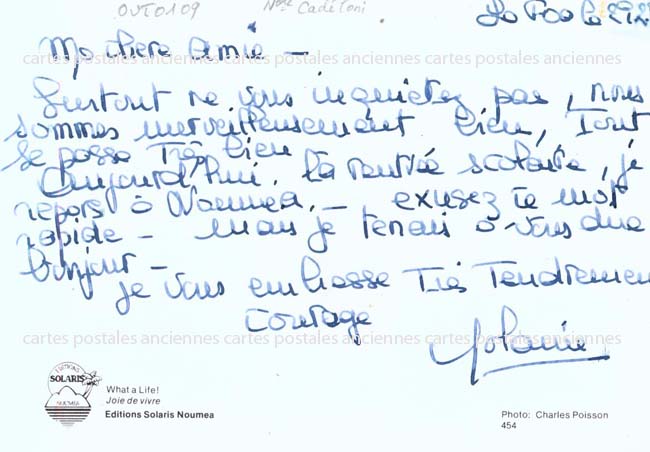 OUTO109 Nlle Calédoni
La Foa le 2/2
Ma chere Amie -
cartes postales anciennes cartes postales anciennes cartes postales anciennes
Surtout ne vous inquietez pas, nous
sommes merveilleusement bien, Tout
se passe Très bien
Aujourd'hui, la rentrée scolaire, je
repars à Noumea. - excusez ce mot
rapide - mais je tenais à vous dire
bonjour -
Je vous embrasse Très Tendremen
Courage
cartes postales anciennes cartes postales anciennes cartes postales anciennes
EDITIONS
SOLARIS
NOUMEA
What a Life!
Joie de vivre
Editions Solaris Noumea
Photo: Charles Poisson
454